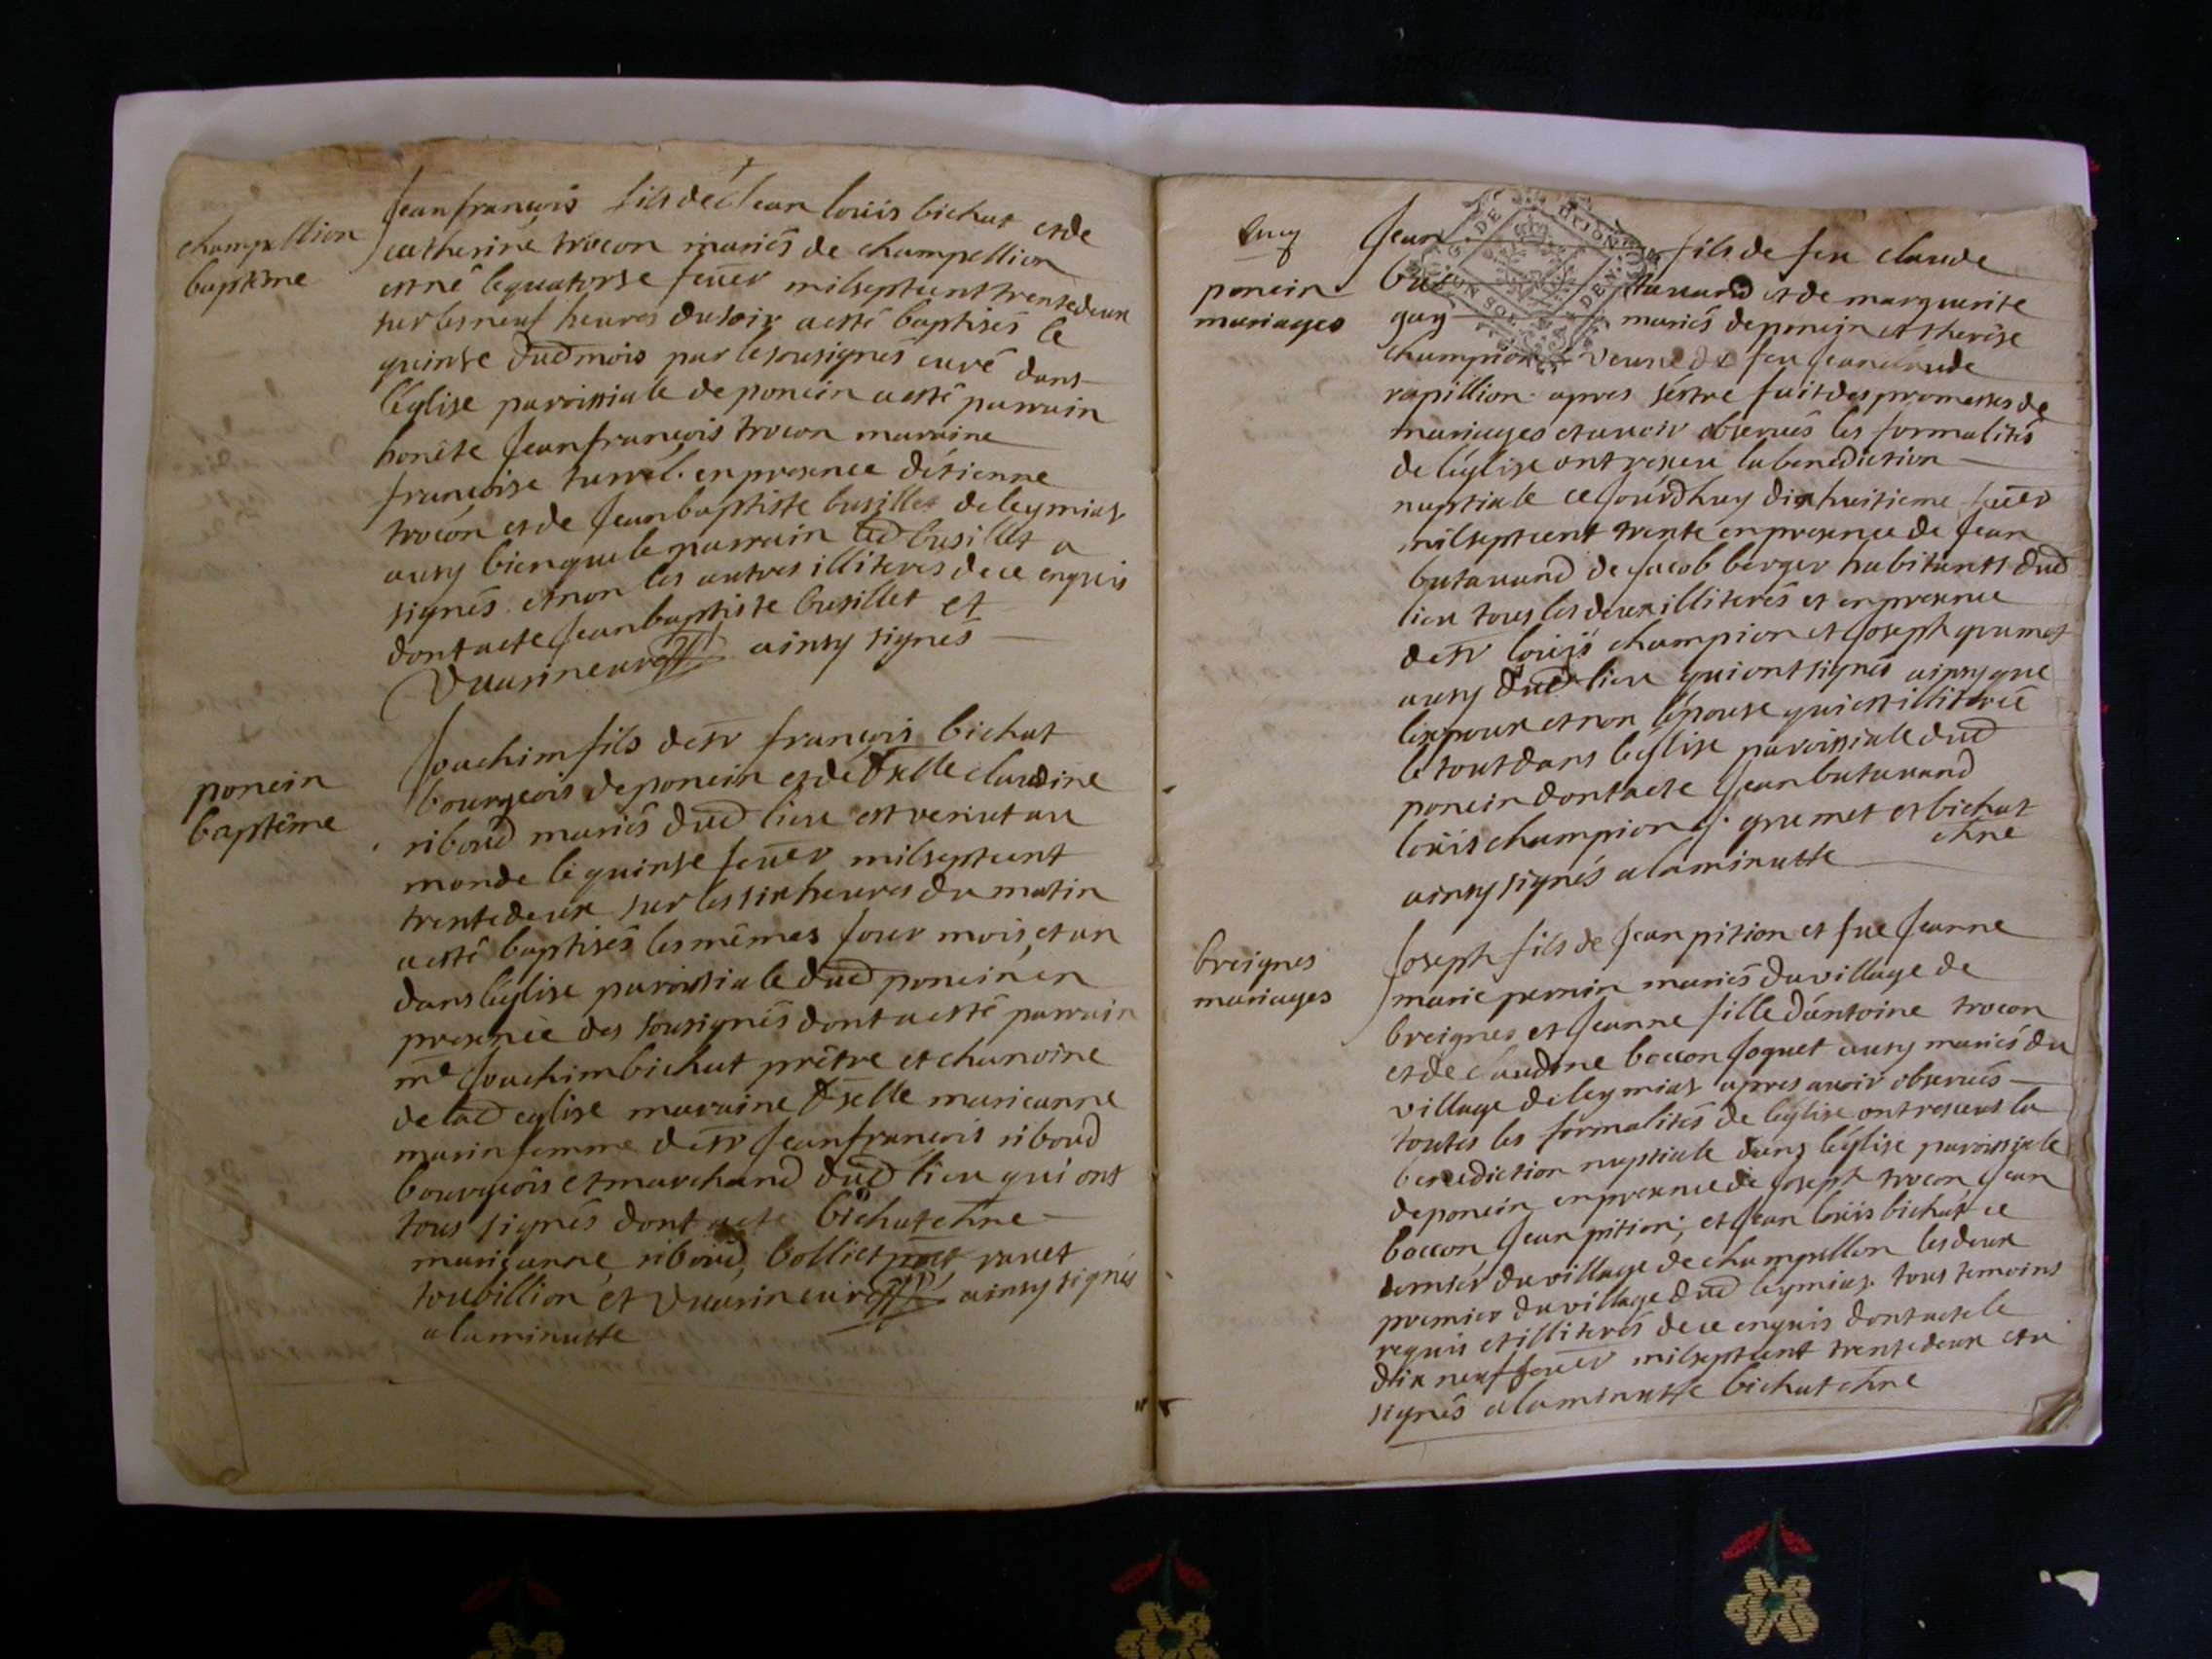 champellion
baptême
Jean françois fils de Jean loüis bichat et de
catherine trocon mariés de champellion
est né le quatorse feuer mil sept cent trente deux
sur les neuf heures du soir a esté baptisés le
quinse dud mois par le sousignés curé dans
l'église paroissiale de poncin a esté parrain
honête Jean françois trocon marraine
françoise turrel. en presence d'étienne
trocon et de Jean baptiste busillet de leymiat
aussy bien que le parrain led busillet a
signés et non les autres illiterés de ce enquis
dont acte Jean baptiste busillet et
Vuarin curé ainsy signés
poncin
baptême
Joachim fils de sr françois bichat
bourgeois de poncin et de dselle claudine
riboud mariés dud lieu est venut au
monde le quinse feuer mil sept cent
trente deux sur les six heures du matin
a esté baptisés les mêmes Jour mois et an
dans l'église paroissiale dud poncin en
presence des sousignés dont a esté parrain
mre Joachim bichat prêtre et chanoine
de lad eglise maraine dselle marie anne
marin femme de sr Jean françois riboud
bourgeois et marchand dud lieu qui ont
tous signés dont acte bichat chne
marianne riboud, bolliet ptre ravet
toubillion et Vuarin curé ainsy signés
a la minutte
poncin
mariages
Jean fils de feu claude
butauand et de marguerite
guy mariés de poncin et therese
champion veuue de feu Jean claude
rapillion apres s'estre fait des promesses de
mariages et auoir obserués les formalités
de l'église ont reseu la benediction
nuptiale ce Jourdhuy dix huitieme feuer
mil sept cent trente en presence de Jean
butauand de Jacob berger habitants dud
lieu tous les deux illiterés et en presence
de sr loüis champion et Joseph grumet
aussy dud lieu qui ont signés ainsy que
l'expoux et non l'épouse qui est illiterée
le tout dans l'eglise paroissiale dud
poncin dont acte Jean butauand
loüis champion J. grumet et bichat
chne
ainsy signés a la minutte
breignes
mariages
Joseph fils de Jean pition et fue Jeanne
marie pernin mariés du village de
breignes et Jeanne fille d'antoine trocon
et de claudine boccon Joquet aussy mariés du
village de leymiat apres auoir obserués
toutes les formalités de l'église ont reseus la
benediction nuptiale dans l'église paroissiale
de poncin en presence de Joseph trocon Jean
boccon Jean pition; et Jean loüis bichat ce
dernier du village de champellion les deux
premier du village dud leymiat. tous temoins
requis et illiterés de ce enquis dont acte le
dix neuf feuer mil sept cent trente deux et a
signés a la minutte bichat chne